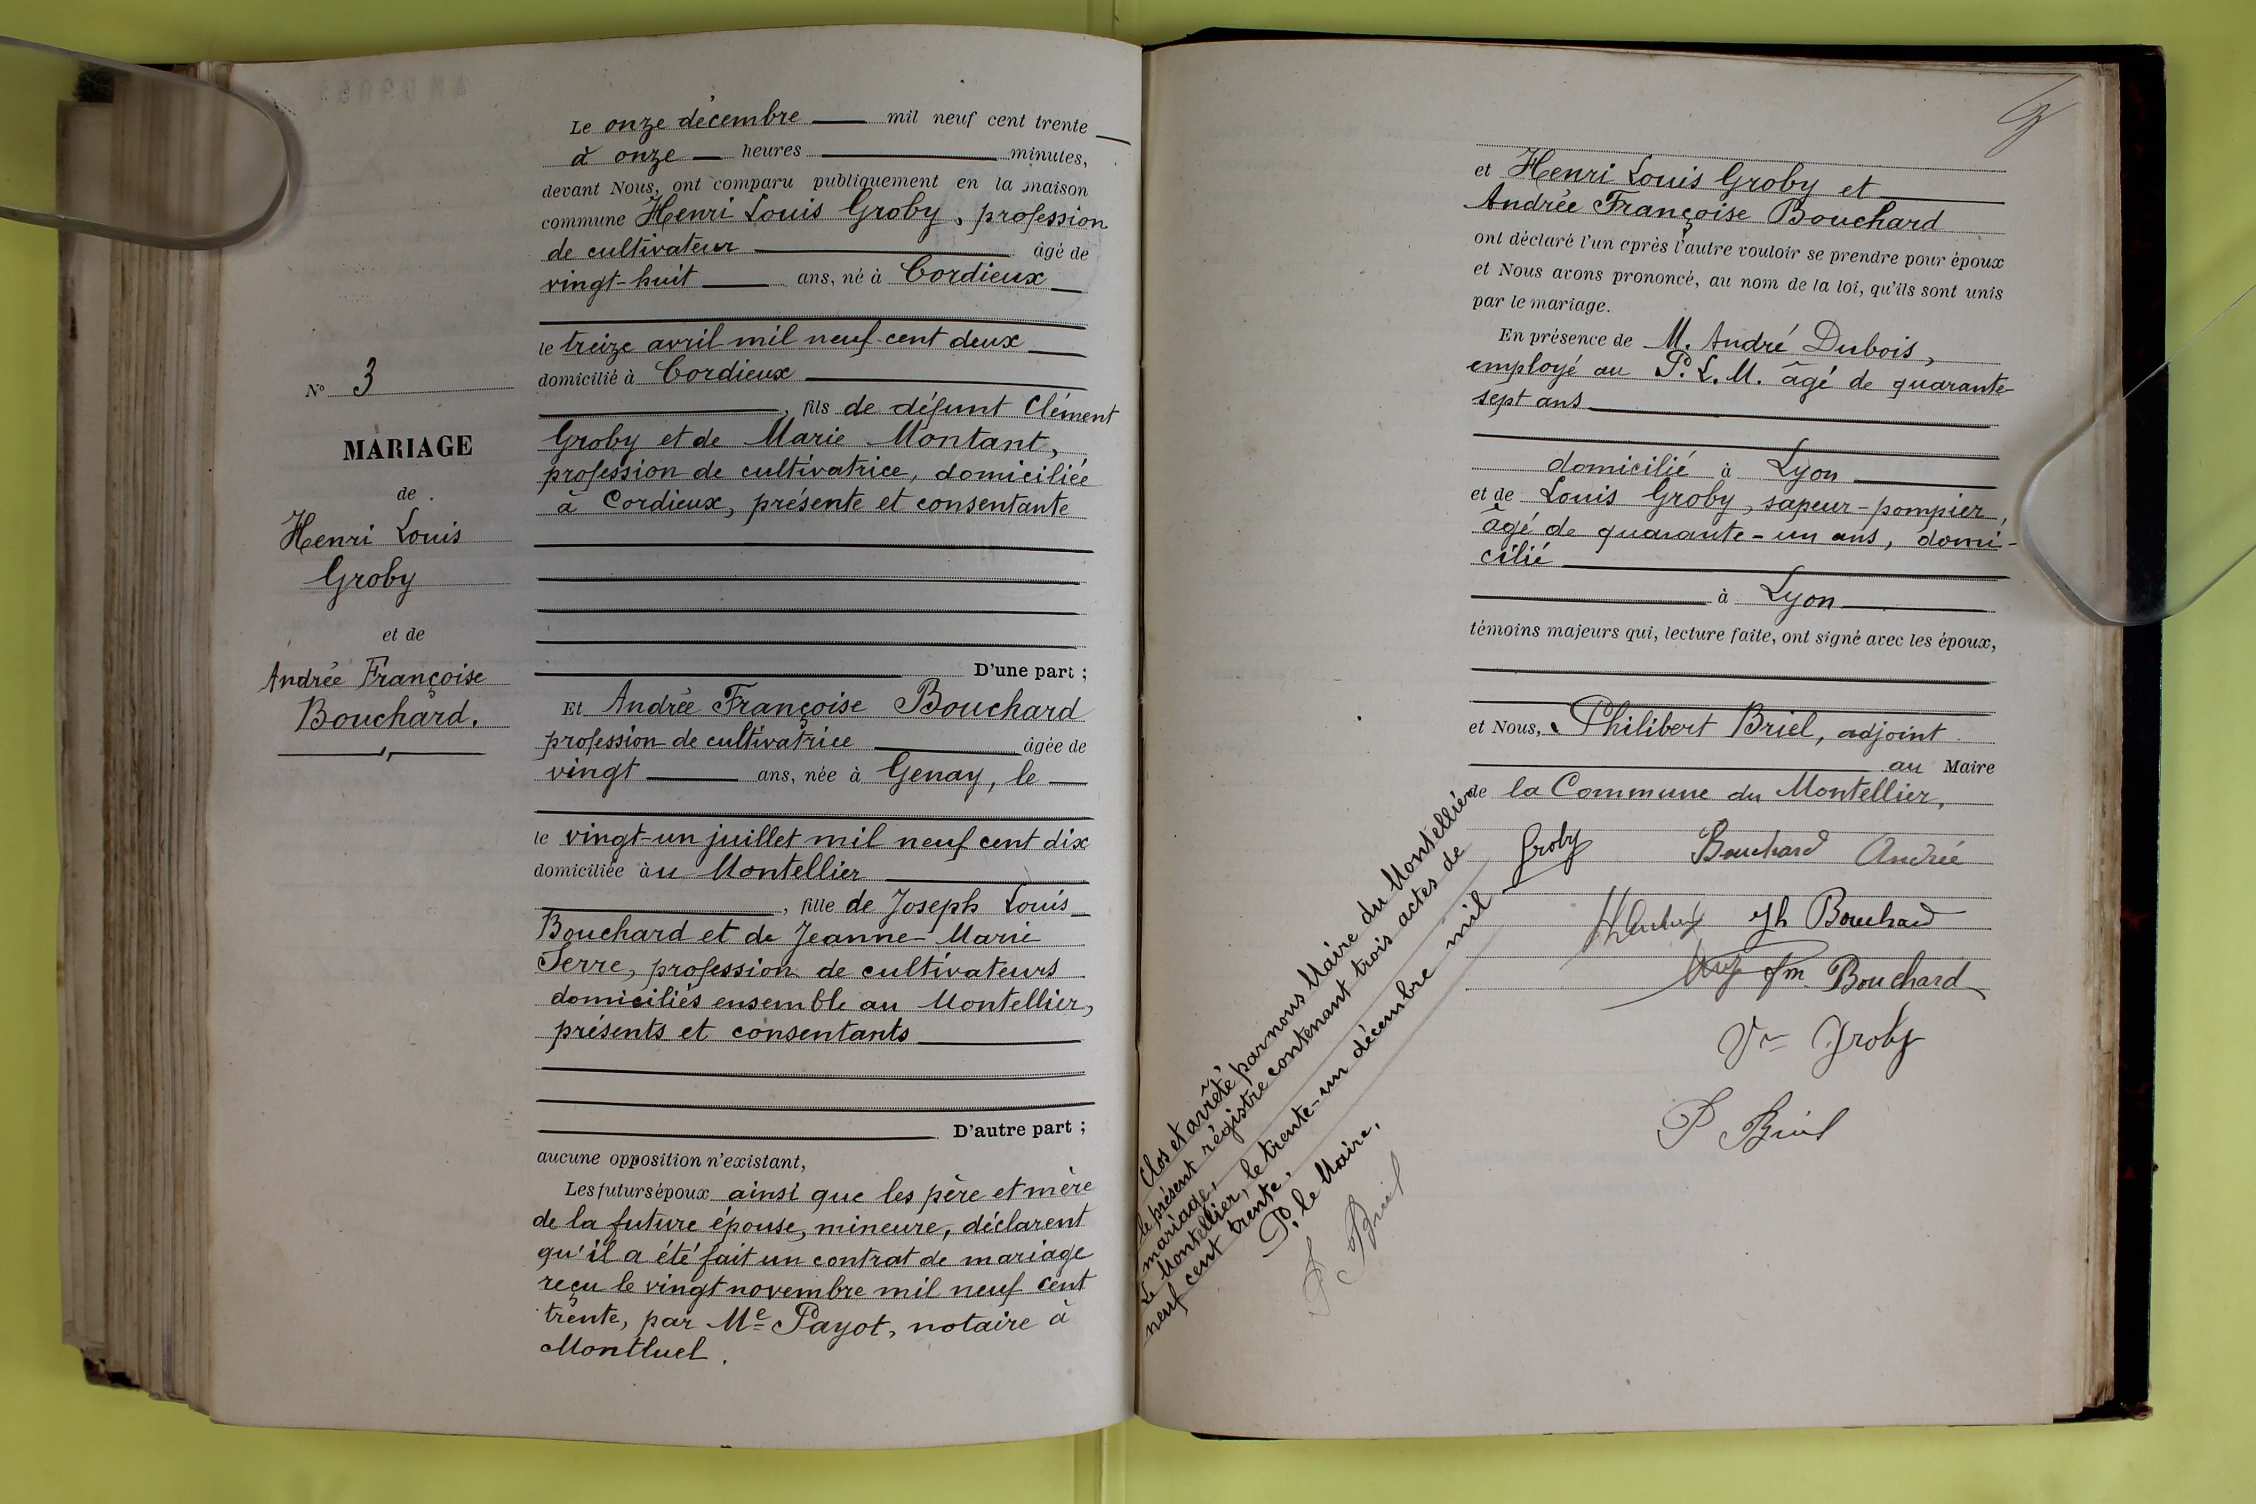 N° 3
MARIAGE
de
Henri Louis
Groby
et de
Andrée Françoise
Bouchard.
Le onze décembre mil neuf cent trente
à onze heures minutes,
devant Nous, ont comparu publiquement en la maison
commune Henri Louis Groby, profession
de cultivateur âgé de
vingt-huit ans, né à Cordieux
le treize avril mil neuf cent deux
domicilié à Cordieux
, fils de défunt Clément
Groby et de Marie Montant,
profession de cultivatrice, domiciliée
à Cordieux, présente et consentante
D'une part ;
Et Andrée Françoise Bouchard
profession de cultivatrice âgée de
vingt ans, née à Genay, le
le vingt-un juillet mil neuf cent dix
domiciliée àu Montellier
, fille de Joseph Louis
Bouchard et de Jeanne-Marie
Serre, profession de cultivateurs
domiciliés ensemble au Montellier,
présents et consentants
D'autre part ;
aucune opposition n'existant,
Les futurs époux ainsi que les père et mère
de la future épouse, mineure, déclarent
qu'il a été fait un contrat de mariage
reçu le vingt novembre mil neuf cent
trente, par Me Payot, notaire à
Montluel.
et Henri Louis Groby et
Andrée Françoise Bouchard
ont déclaré l'un après l'autre vouloir se prendre pour époux
et Nous avons prononcé, au nom de la loi, qu'ils sont unis
par le mariage.
En présence de M. André Dubois,
employé au P. L. M. âgé de quarante-
sept ans
domicilié à Lyon
et de Louis Groby, sapeur-pompier,
âgé de quarante-un ans, domi-
cilié
à Lyon
témoins majeurs qui, lecture faite, ont signé avec les époux,
et Nous, Philibert Briel, adjoint
au Maire
de la Commune du Montellier,
Groby Bouchard Andrée
Jh Bouchard
Jm Bouchard
Ve Groby
P Briel
Clos et arrêté par nous Maire du Montellier
le présent régistre contenant trois actes de
mariage.
Le Montellier, le trente-un décembre mil
neuf cent trente.
Po le Maire,
P Briel